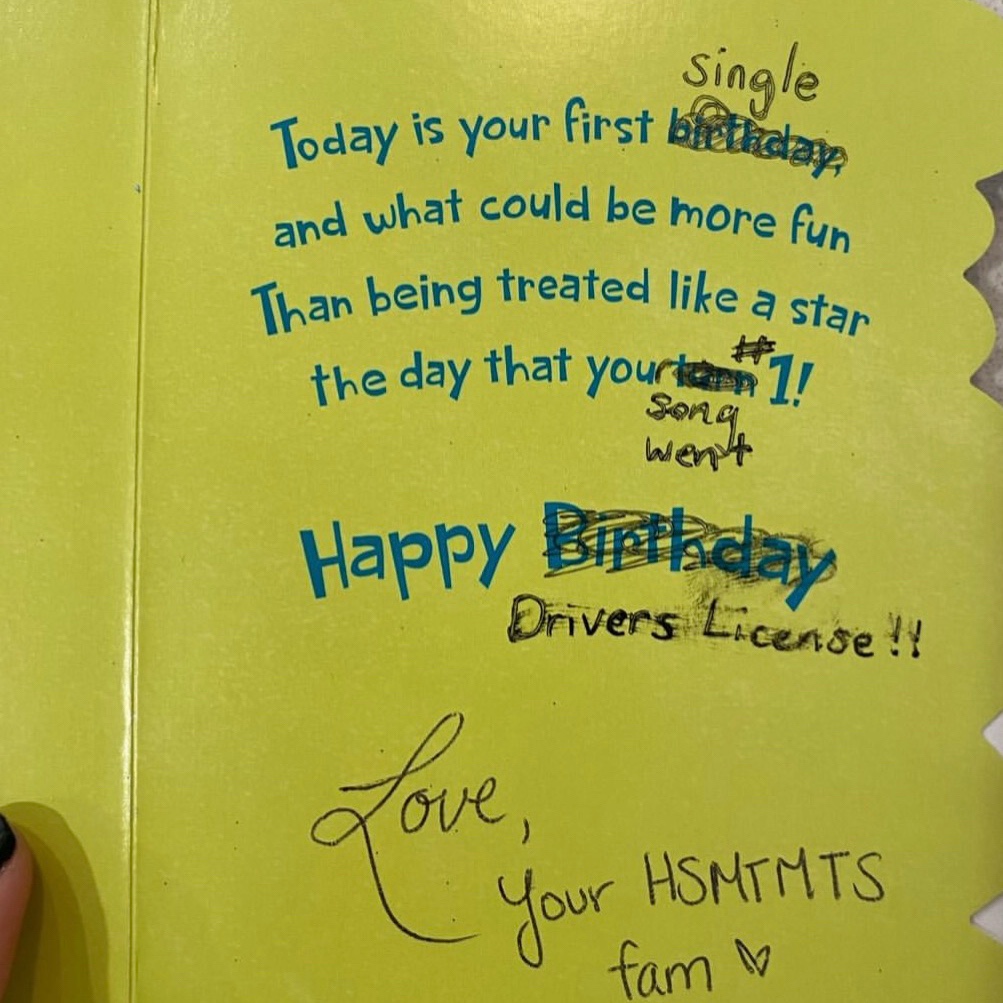 single
Today is your first birthday,
and what could be more fun
Than being treated like a star
the day that you turn # 1!
song
went
Happy Birthday
Drivers License!!
Love,
your HSMTMTS
fam